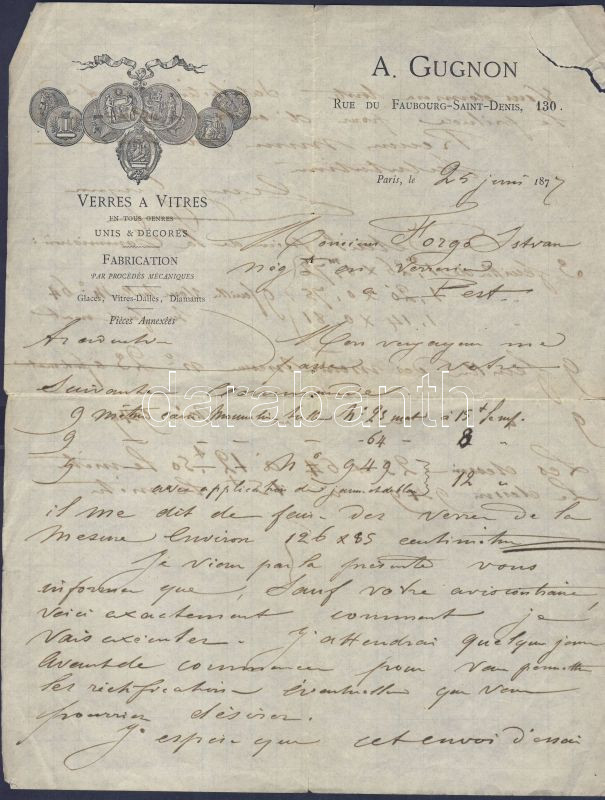 A. GUGNON
RUE DU FAUBOURG-SAINT-DENIS, 130.
Paris, le 25 juin 1877
VERRES A VITRES
EN TOUS GENRES
UNIS & DÉCORÉS
FABRICATION
PAR PROCÉDÉS MÉCANIQUES
Glaces, Vitres-Dalles, Diamants
Pièces Annexées
Monsieur Forgo Istvan
négt en verrerie
a Pest
Mon voyageur me
votre
suivante
9 mètres N° 23 mat à 15
9 -64- 8 "
9 N° 949 12 "
avec application de
il me dit de faire des verres de la
mesure environ 126 x 85 centimètres
Je viens par la présente vous
informer que, sauf votre avis contraire,
voici exactement comment je
vais exécuter. J'attendrai quelques jours
avant de commencer pour vous permettre
les rectifications éventuelles que vous
pourriez désirer.
J'espère que cet envoi d'essai
darabanth